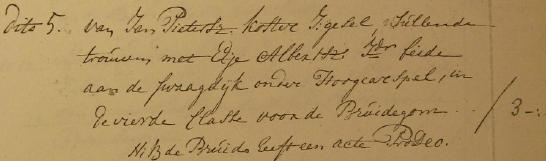 Dito 5. van Jan Pietersz. Koster J:gesel, zullende
trouwen met Etje Alberts Jdr beide
aan de Zwaagdijk onder Hoogcarspel, in
de vierde Classe voor de Bruidegom / 3-:
NB de Bruid heeft een acte ProDeo.